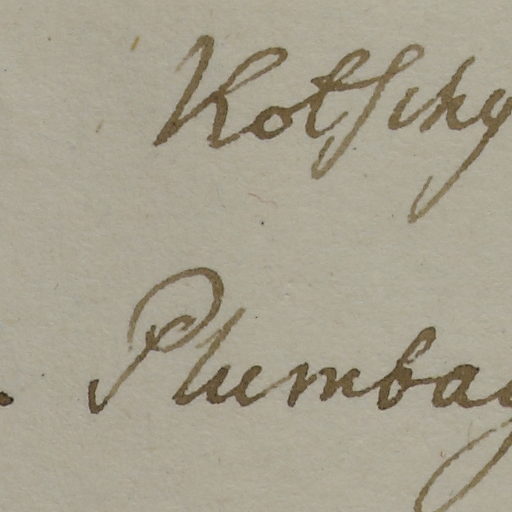 Kotschy
Plumbag